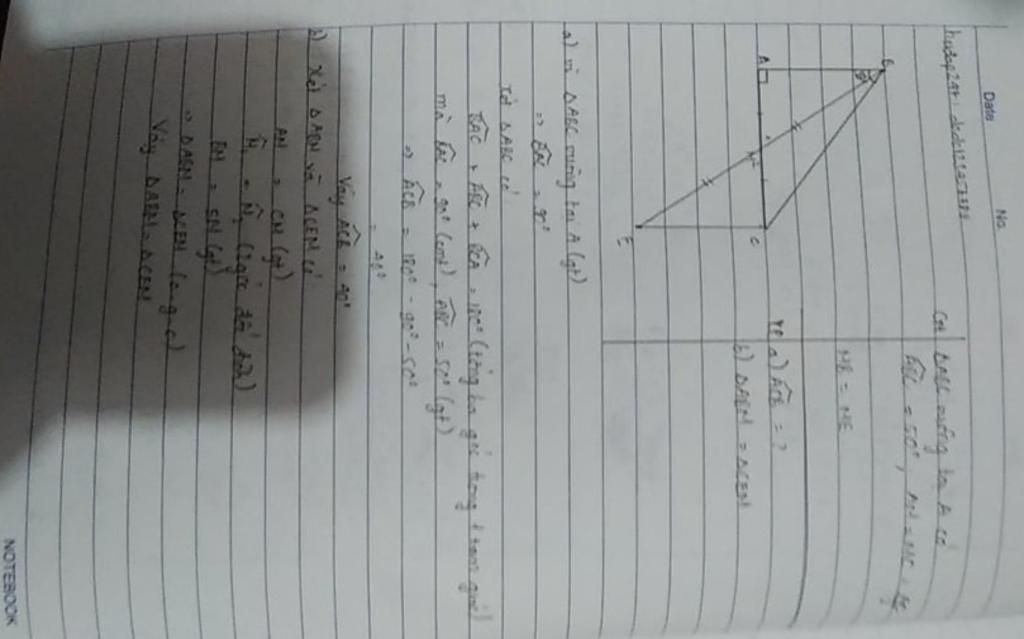 Date
No.
GT ΔABC vuông tại A có
ABC = 50°, AM = MC,
MB = ME
KL a) ACB = ?
b) ΔABM = ΔCEM
B
50°
A
M
C
E
a) vì ΔABC vuông tại A (gt)
⇒ BAC = 90°
Xét ΔABC có
BAC + ABC + BCA = 180° (tổng ba góc trong 1 tam giác)
mà BAC = 90° (cmt), ABC = 50° (gt)
⇒ ACB = 180° - 90° - 50°
= 40°
Vậy ACB = 40°
b) Xét ΔABM và ΔCEM có
AM = CM (gt)
M̂₁ = M̂₂ (2 góc đối đỉnh)
BM = EM (gt)
⇒ ΔABM = ΔCEM (c-g-c)
Vậy ΔABM = ΔCEM
NOTEBOOK